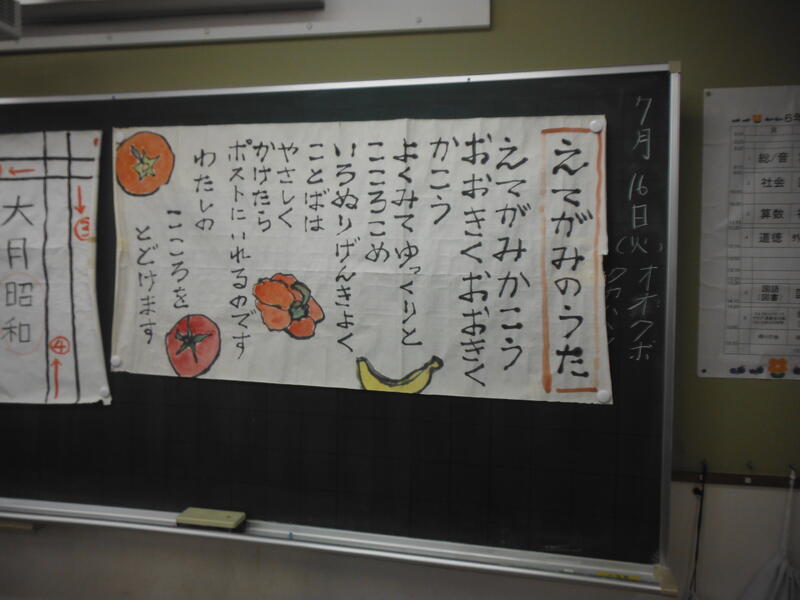 7月16日(火)オオクボ
えてがみのうた
えてがみかこう
おおきくおおきく
かこう
よくみてゆっくりと
こころこめ
いろぬりげんきよく
ことばは
やさしく
かけたら
ポストにいれるのです
わたしの
こころを
とどけます
②
④
大月昭和
総/音
社会
算数
道徳
国語
(図書)